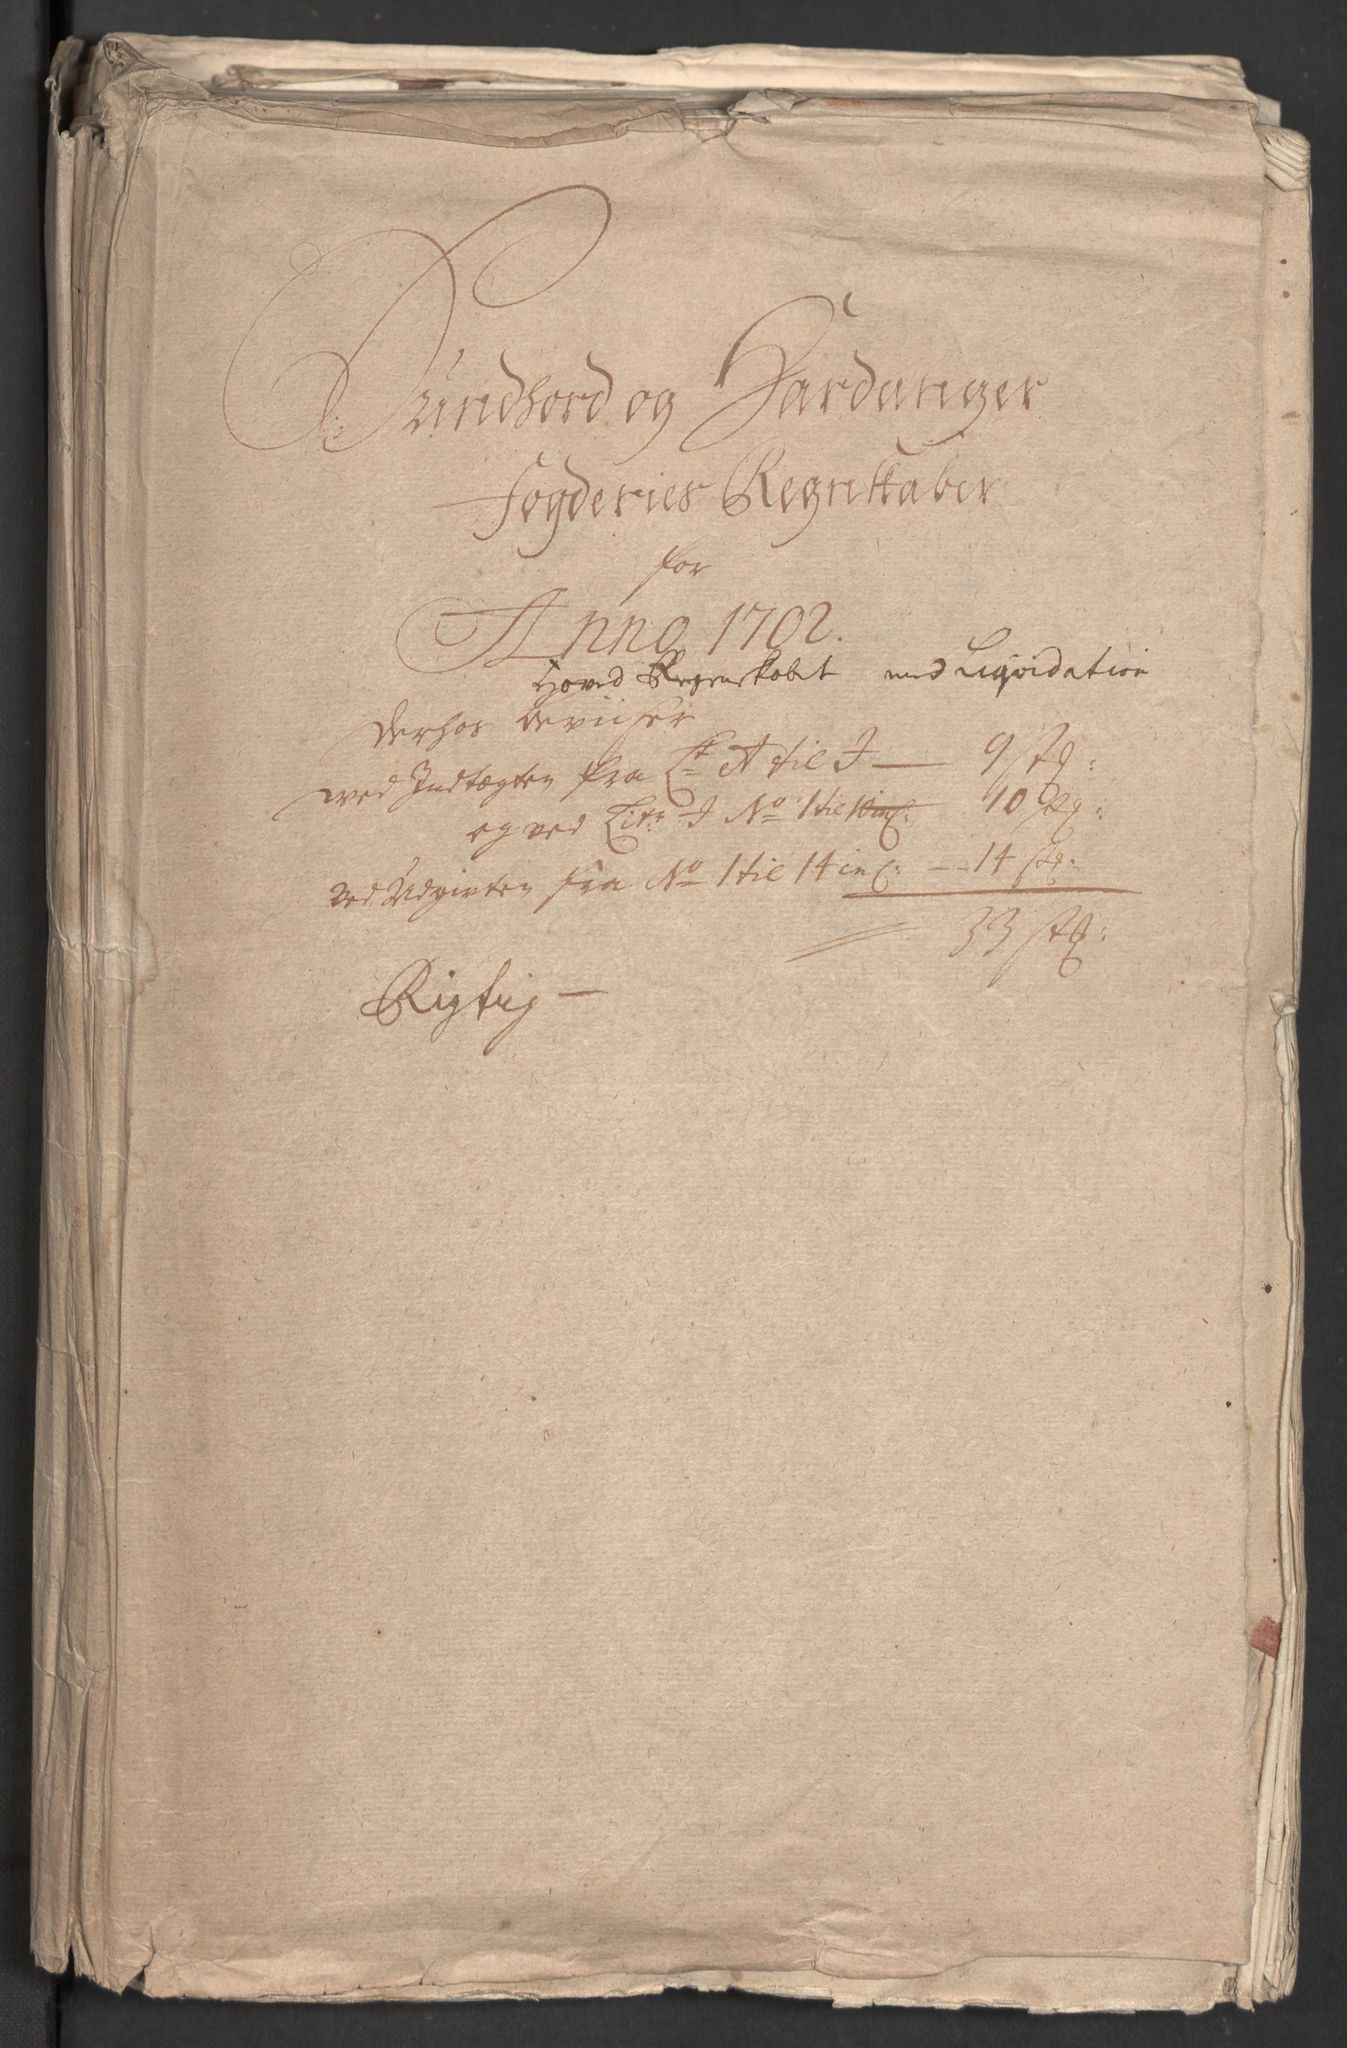 Sundhord og Hardanger
Fogderies Regnskaber
for
Anno 1702.
Hoved Regenskabet med Liqvidation
derhos beviiser
ved Indtægten fra Lr A til I — 9 stk:
og ved Litr I No 1 til 10 incl: 10 stk:
ved Udgivten fra No 1 til 14 incl: — 14 stk:
33 stk:
Rigtig —